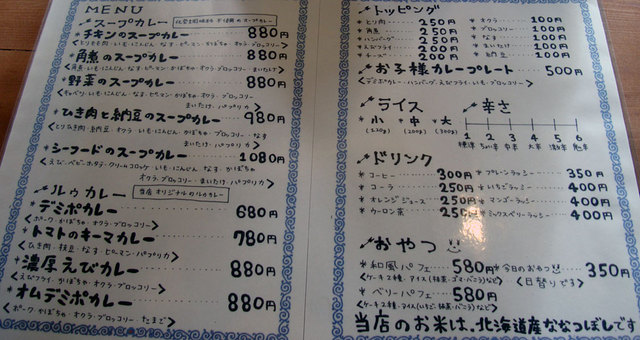 MENU
スープカレー
*チキンのスープカレー 880円
<とりもも肉・いも・にんじん・なす・ピーマン・かぼちゃ・オクラ・ブロッコリー>
*角煮のスープカレー 880円
<角煮・いも・にんじん・なす・ピーマン・かぼちゃ・オクラ・ブロッコリー・まいたけ>
*野菜のスープカレー 880円
<キャベツ・いも・にんじん・なす・ピーマン・かぼちゃ・オクラ・ブロッコリー・
まいたけ・パプリカ>
*ひき肉と納豆のスープカレー 980円
<とりひき肉・納豆・オクラ・いも・にんじん・かぼちゃ・ブロッコリー・なす
まいたけ・パプリカ>
*シーフードのスープカレー 1080円
<えび・ベビーホタテ・クリームコロッケ・いも・にんじん・なす・かぼちゃ
オクラ・ブロッコリー・まいたけ・パプリカ>
ルゥカレー 当店オリジナルのルゥカレー
*デミポカレー 680円
<ポーク・かぼちゃ・オクラ・ブロッコリー>
*トマトのキーマカレー 780円
<ひき肉・枝豆・なす・ピーマン・パプリカ>
*濃厚えびカレー 880円
<えびフライ・かぼちゃ・オクラ・ブロッコリー>
*オムデミポカレー 880円
<ポーク・かぼちゃ・オクラ・ブロッコリー・たまご>
トッピング
*とり肉 250円 *オクラ 100円
*角煮 250円 *いも 100円
*ハンバーグ 250円 *なす 100円
*えびフライ 200円 *まいたけ 100円
*チーズ 200円 *納豆 100円
*お子様カレープレート 500円
<デミポカレー・ハンバーグ・えびフライ・いも・ブロッコリー>
ライス
*小 *中 *大
(120g) (200g) (300g)
辛さ
1 2 3 4 5 6
標準 ちょい辛 中辛 大辛 激辛 鬼辛
ドリンク
*コーヒー 300円 *プレーンラッシー 350円
*コーラ 250円 *いちごラッシー 400円
*オレンジジュース 250円 *マンゴーラッシー 400円
*ウーロン茶 250円 *ミックスベリーラッシー 400円
おやつ
*和風パフェ 580円 *今日のおやつ 350円
<ケーキ2種・アイス(抹茶・ゴマ・バニラ)など> <日替りです>
*ベリーパフェ 580円
<ケーキ2種・アイス(いちご・抹茶・バニラ)など>
当店のお米は、北海道産ななつぼしです